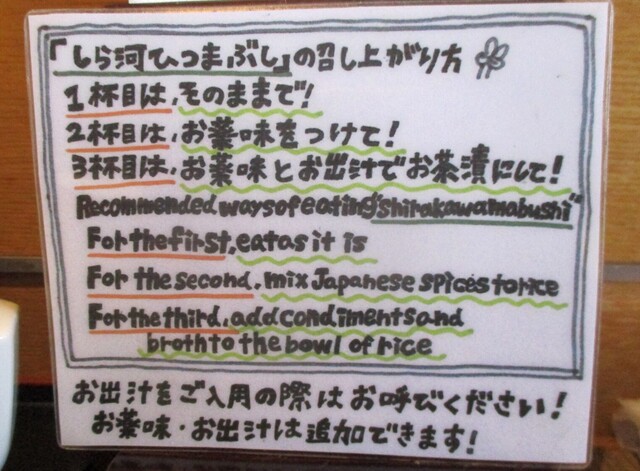 『しら河ひつまぶし』の召し上がり方
1杯目は、そのままで！
2杯目は、お薬味をつけて！
3杯目は、お薬味とお出汁でお茶漬にして！
Recommended ways of eating "Shirakawamabushi"
For the first, eat as it is
For the second, mix Japanese spices to rice
For the third, add condiments and
broth to the bowl of rice
お出汁をご入用の際はお呼びください！
お薬味・お出汁は追加できます！